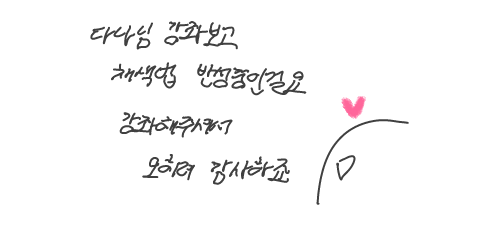 다나님 강좌보고
채색법 반성중인걸요
강좌해주셔서
오히려 감사하죠